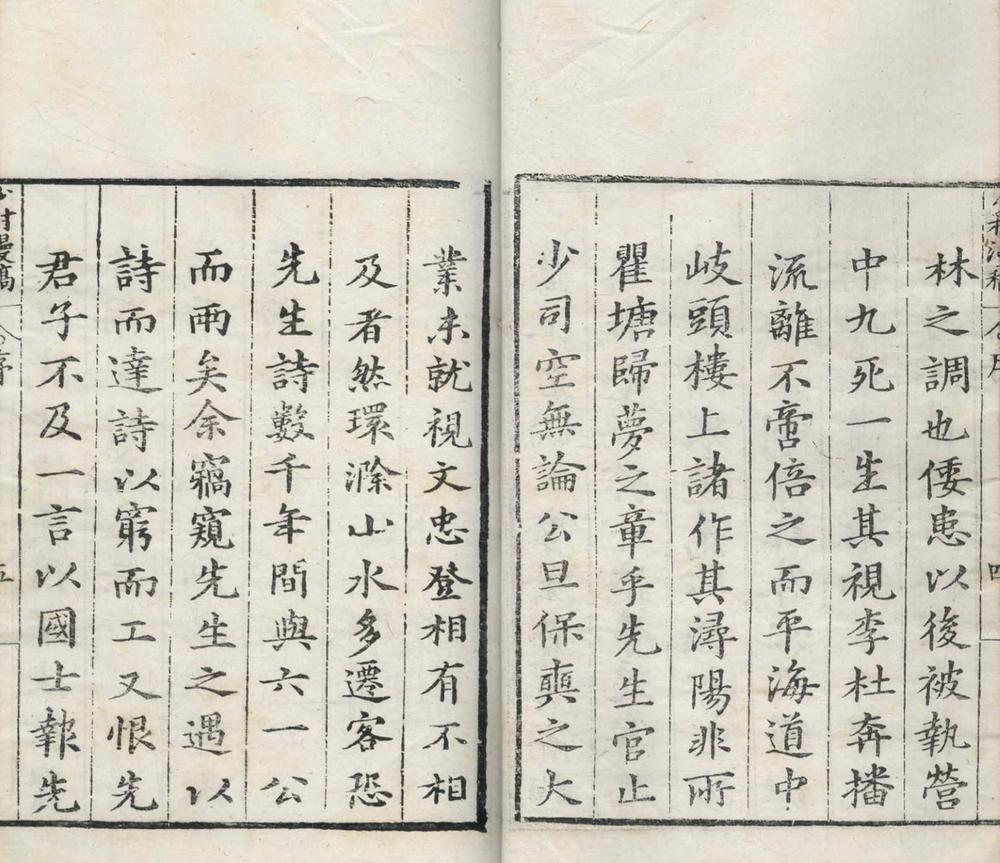 林之調也倭患以後被執營
中九死一生其視李杜奔播
流離不啻倍之而平海道中
岐頭樓上諸作其潯陽非所
瞿塘歸夢之章乎先生官止
少司空無論公旦保奭之大
業未就視文忠登相有不相
及者然環滁山水多遷客恐
先生詩數千年間與六一公
而兩矣余竊窺先生之遇以
詩而達詩以窮而工又恨先
君子不及一言以國士報先
村漫稿 序 五